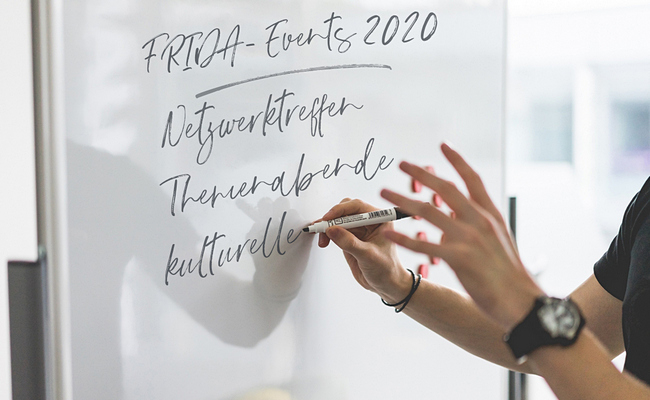 FRIDA-Events 2020
Netzwerktreffen
Themenabende
kulturelle